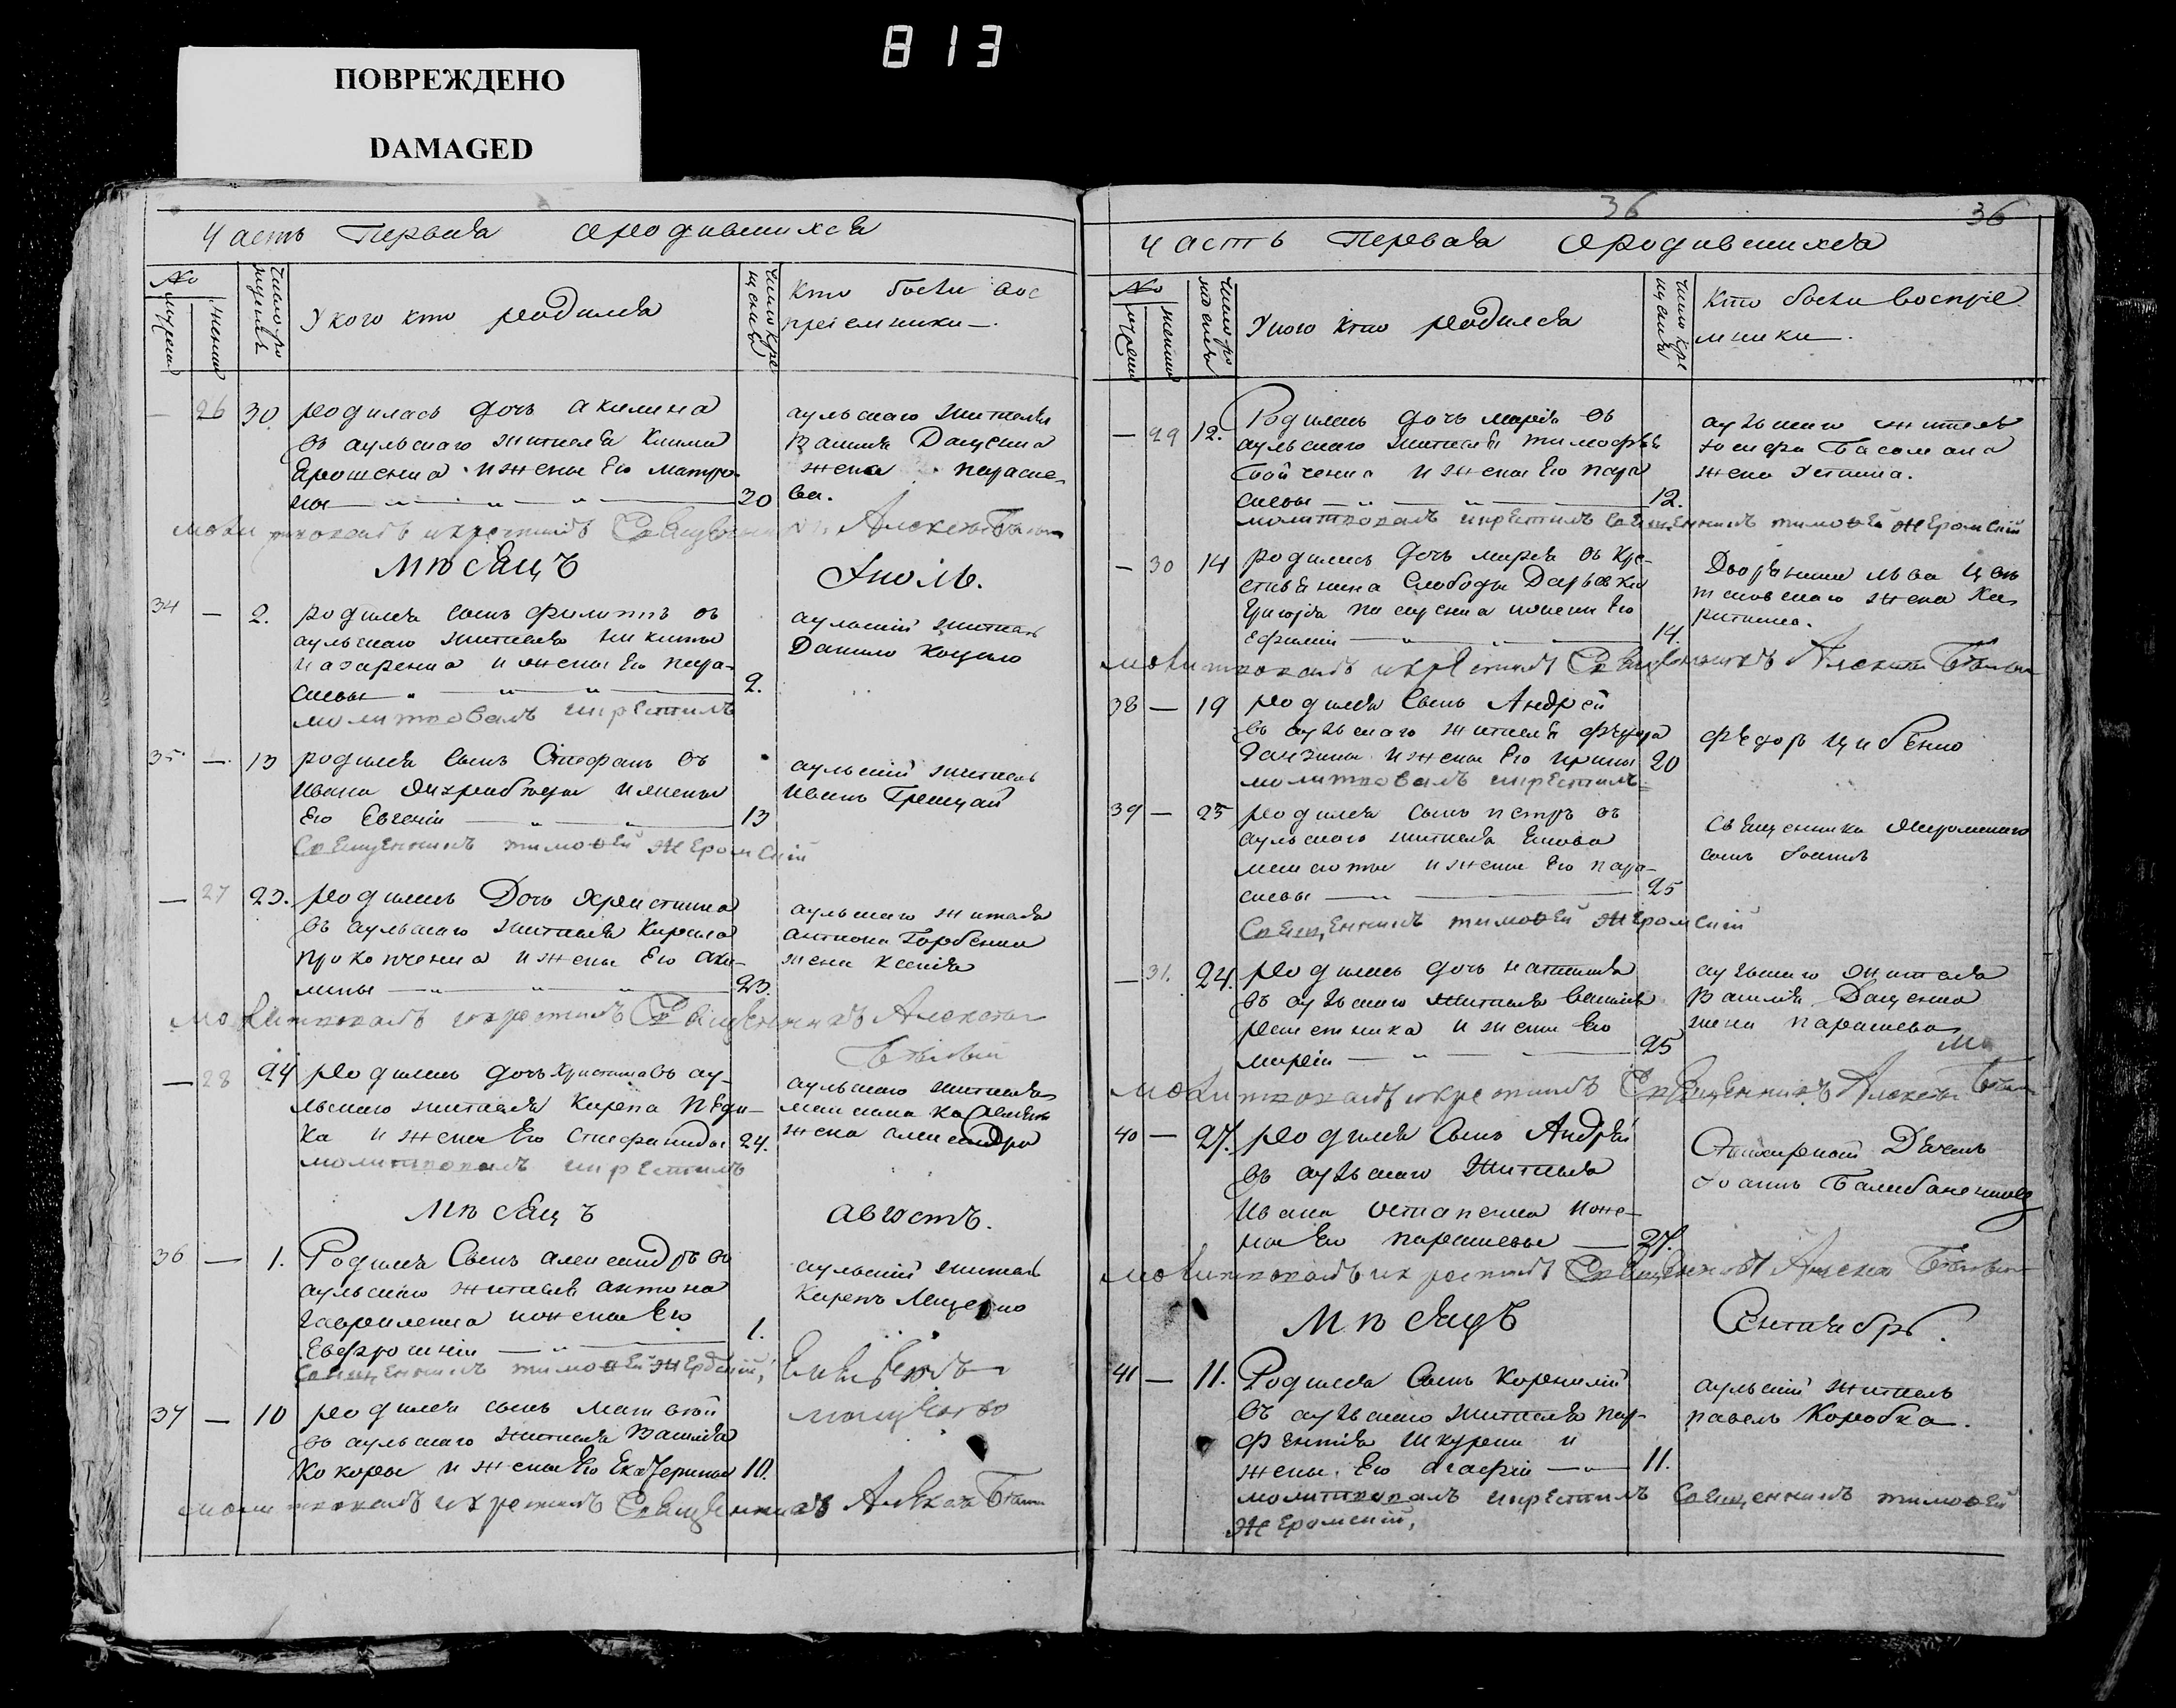 813
ПОВРЕЖДЕНО
DAMAGED
Часть Первая о родившихся
№
мужеска
женска
Число рождения
У кого кто родился
Число крещения
Кто были вос
пріемники —.
— 26 30 родилась дочь акилина
въ аульскаго жителя Клима
Ярошенка и жены Его матро-
ны 20
аульскаго жителя
Василия Даценка
жена параске-
ва.
молитвовалъ и крестилъ Священникъ Алексей
Мѣсяцъ Іюль.
34 — 2. родился сынъ филиппъ въ
аульскаго жителя никиты
назаренка и жены Его пара-
скевы 2.
аульский житель
Данило Коцько
молитвовалъ и крестилъ
35 — 13 родился сынъ Стефанъ въ
Ивана и жены
Его Евгеніи 13
аульский житель
Иванъ Грицай
Священникъ тимоѳей жеромскій
— 27 23. родилась Дочь христина
въ аульскаго жителя Кирила
прокопченка и жены Его аки-
лины 23.
аульскаго жителя
антона Горбенка
жена ксенія
молитвовалъ и крестилъ Священникъ Алексей
— 28 24 родилась дочь христина въ ау-
льскаго жителя Кирила
ка и жены Его Стефаниды 24.
аульскаго жителя
жена александра
молитвовалъ и крестилъ
Мѣсяцъ августъ.
36 — 1. Родился Сынъ александръ въ
аульскаго жителя антона
гавриленка и жены Его
Евфросиніи 1.
аульский житель
Священникъ тимоѳей
37 — 10 родился сынъ матвѣй
въ аульскаго жителя Василия
Кокоры и жены Его Екатерины 10.
молитвовалъ и крестилъ Священникъ Алексей
36
36
часть первая о родившихся
№
мужеска
женска
Число рождения
У кого кто родился
Число крещения
Кто были воспріе
мники.
— 29 12. Родилась дочь марія въ
аульскаго жителя тимофѣя
Бойченка и жены Его пара
скевы 12.
аульскаго житель
Іосифа Басамана
жена Устина.
молитвовалъ и крестилъ священникъ тимоѳей жеромскій
— 30 14 родилась дочь марія въ кре-
стьянина Слободы Дарьевки
Григорія и жены Его
Ефиміи 14.
Дворянина льва
жена Ха-
ритина.
молитвовалъ и крестилъ Священникъ Алексей
38 — 19 родился Сынъ Андрей
въ аульскаго жителя федора
и жены Его ирины 20
федоръ Цибенко
молитвовалъ и крестилъ
39 — 25 родился сынъ петръ въ
аульскаго жителя Якова
и жены Его пара-
скевы 25
Священника Жеромского
сынъ Іоаннъ
Священникъ тимоѳей жеромскій
— 31. 24. родилась дочь наталия
въ аульскаго жителя василия
решетника и жены Его
маріи 25
аульскаго жителя
Василия Даценка
жена параскева
молитвовалъ и крестилъ Священникъ Алексей
40 — 27. родился Сынъ Андрей
въ аульскаго жителя
Ивана остапенка и же-
ны Его параскевы 27.
Іоаннъ
молитвовалъ и крестилъ Священникъ Алексей
Мѣсяцъ Сентябрь.
41 — 11. Родился Сынъ Корнилій
въ аульскаго жителя пар-
фентія шкурки и
жены Его агафіи 11.
аульский житель
павелъ Коробка.
молитвовалъ и крестилъ Священникъ тимоѳей
жеромский,